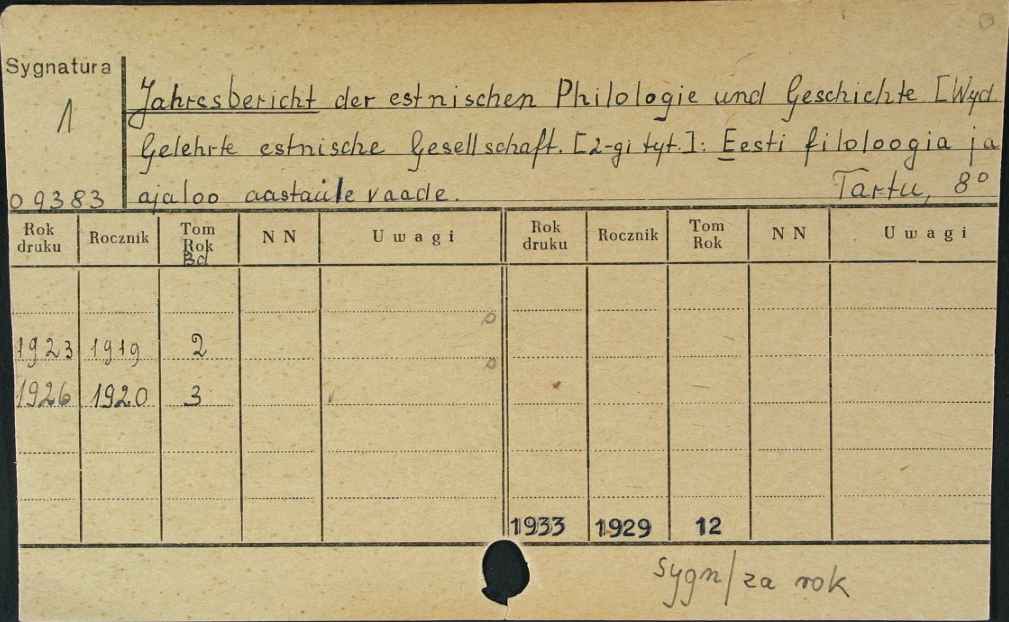 Sygnatura
1
09383
Jahresbericht der estnischen Philologie und Geschichte [Wyd.
Gelehrte estnische Gesellschaft. [2-gi tyt.]: Eesti filoloogia ja
ajaloo aastaülevaade. Tartu, 8°
Rok druku Rocznik Tom Rok Bd NN Uwagi Rok druku Rocznik Tom Rok NN Uwagi
1923 1919 2
1926 1920 3
1933 1929 12
sygn/za rok